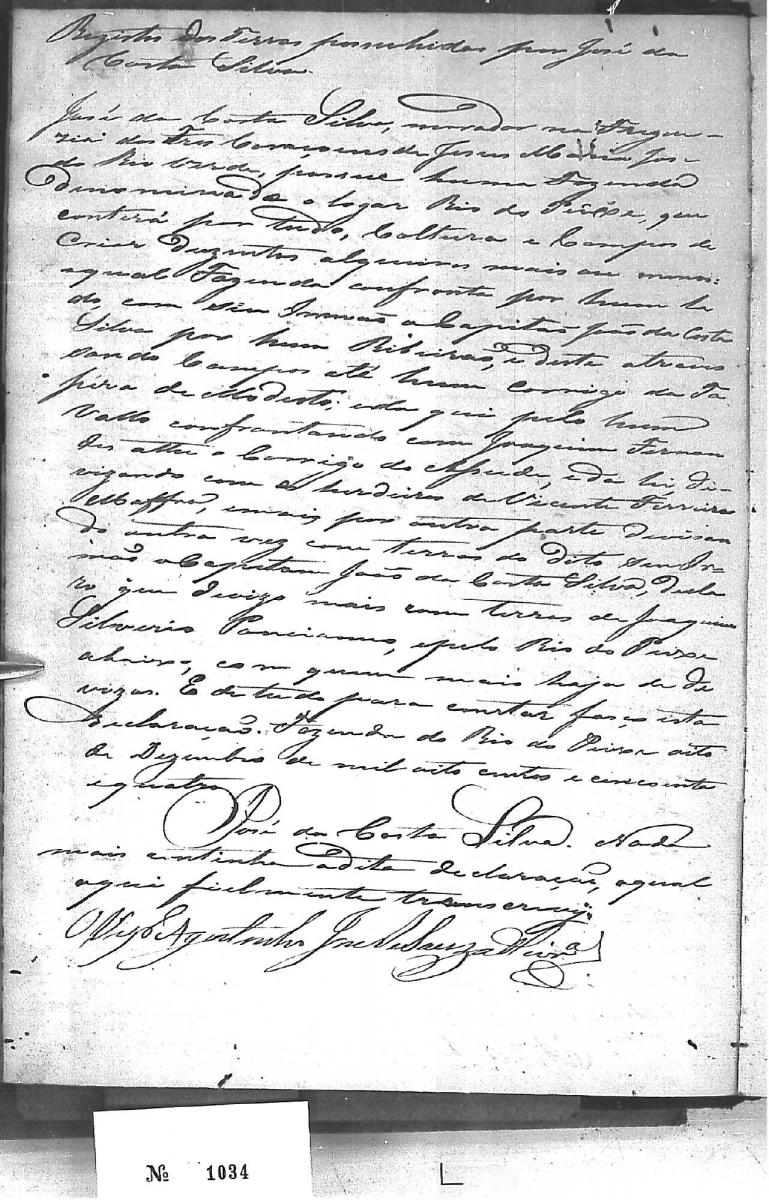 Registo das Terras possuhidas por José da
Costa Silva.
José da Costa Silva, morador na Fregue-
zia dos Tres Coraçoens de Jesus Maria Jos-
do Rio verde, possue huma Fazenda
denominada o logar Rio do Peixe, que
conterá por tudo, Coltura e Campos de
Criar Duzentos alqueires mais ou menos:
aqual Fazenda confronta por hum la
do com seu Irmão o Capitão João da Costa
Silva por hum Ribeirão, e deste atraves
sando Campos até hum corrigo da Ta
péra de Modesto, e da qui pelo hum
Vallo confrontando com Joaquim Fernan
des athe o Corrigo do, e da li di-
vizando com os herdeiros de Vicente Ferreira
Maffra, e mais por outra parte devisan
do outra vez com terras do dito seu Ir-
mão o Capitam João da Costa Silva, decla
ro que divizo mais com terras de Joaquim
Silverio Ponciano, e pelo Rio do Peixe
abaixo, com quem mais haja de di
vizar. E de tudo para constar faço esta
declaração. Fazenda do Rio do Peixe oito
de Dezembro de mil oito centos e cincoenta
e quatro
José da Costa Silva. Nada
mais continha a dita declaração, aqual
aqui fielmente transcrevy.
O Vigr.º Agostinho José de Souza
Nº 1034